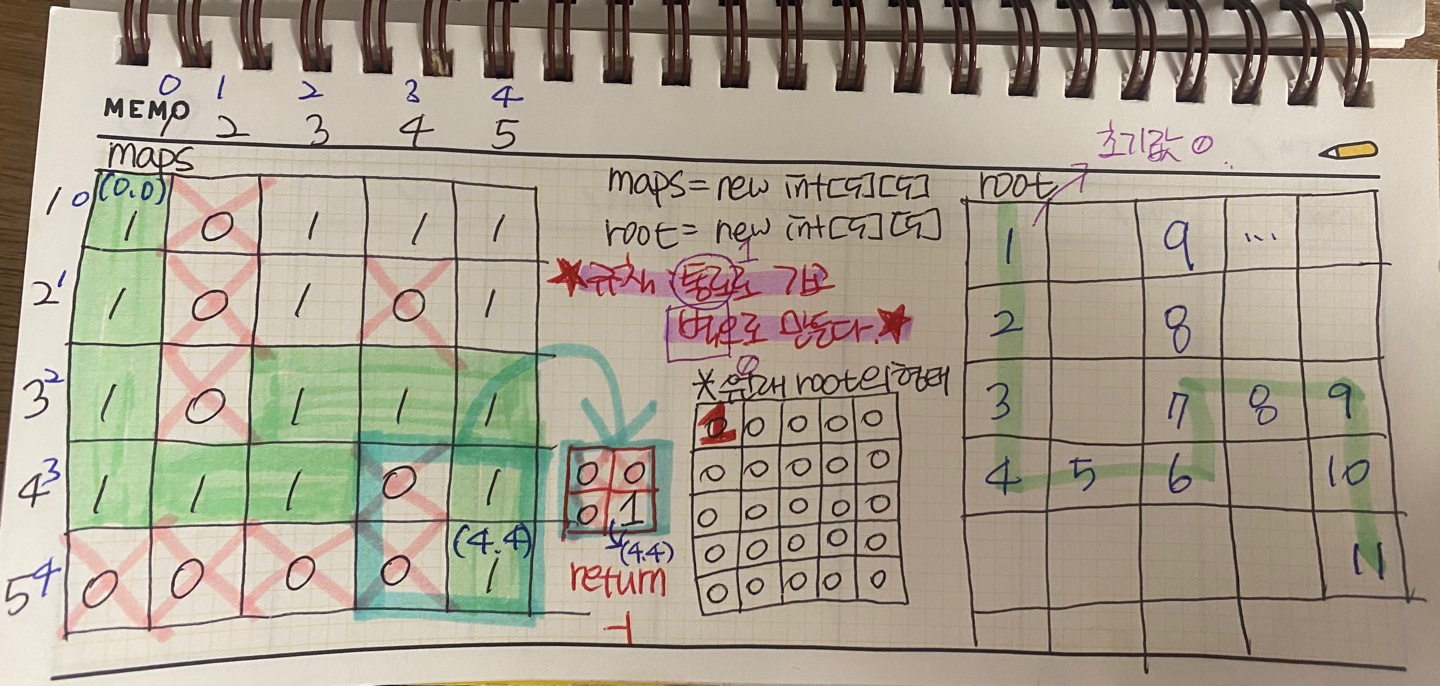 0 1 2 3 4
MEMO
1 2 3 4 5
maps
(0,0)
1 0 1 0 1 1 1
2 1 1 0 1 0 1
3 2 1 0 1 1 1
4 3 1 1 1 0 1
(4,4)
5 4 0 0 0 0 1
maps = new int[5][5]
root = new int[5][5]
1
★ 통로로
벽으로 만든다. ★
0
0 0
0 1
(4,4)
return
-1
* 원래 root의 형태
1 0 0 0 0
0 0 0 0 0
0 0 0 0 0
0 0 0 0 0
0 0 0 0 0
초기값 0
root
1 9 ...
2 8
3 7 8 9
4 5 6 10
11